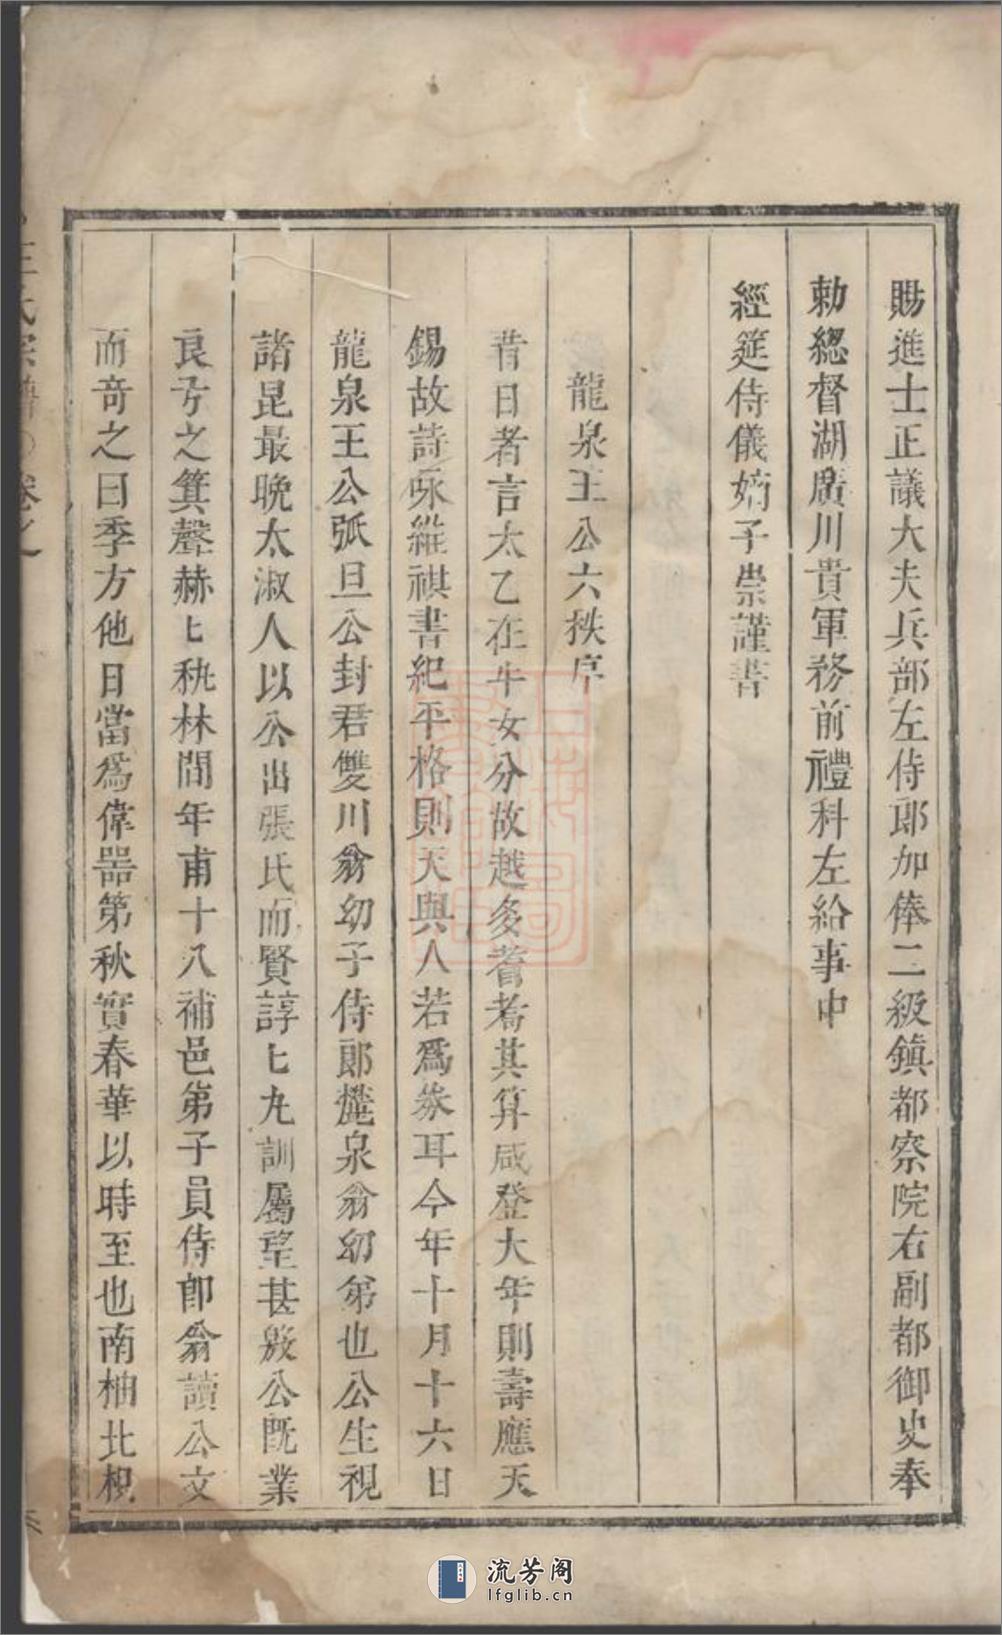 賜進士正議大夫兵部左侍郎加俸二級鎮都察院右副都御史奉
勅總督湖廣川貴軍務前禮科左給事中
經筵侍儀嫡子崇謹書
龍泉王公六袟序
昔日者言太乙在牛女分故越多耆耇其算咸登大年則壽應天
錫故詩咏維祺書紀平格則天與人若爲券耳今年十月十六日
龍泉王公弧旦公封君雙川翁幼子侍郎麓泉翁幼弟也公生視
諸昆最晚太淑人以公出張氏而賢諄〻九訓屬望甚殷公既業
良弓之箕聲赫〻秇林間年甫十八補邑弟子員侍郎翁讀公文
而奇之曰季方他日當爲偉器第秋實春華以時至也南柚北枳
王氏宗譜 卷之
流芳阁
lfglib.cn